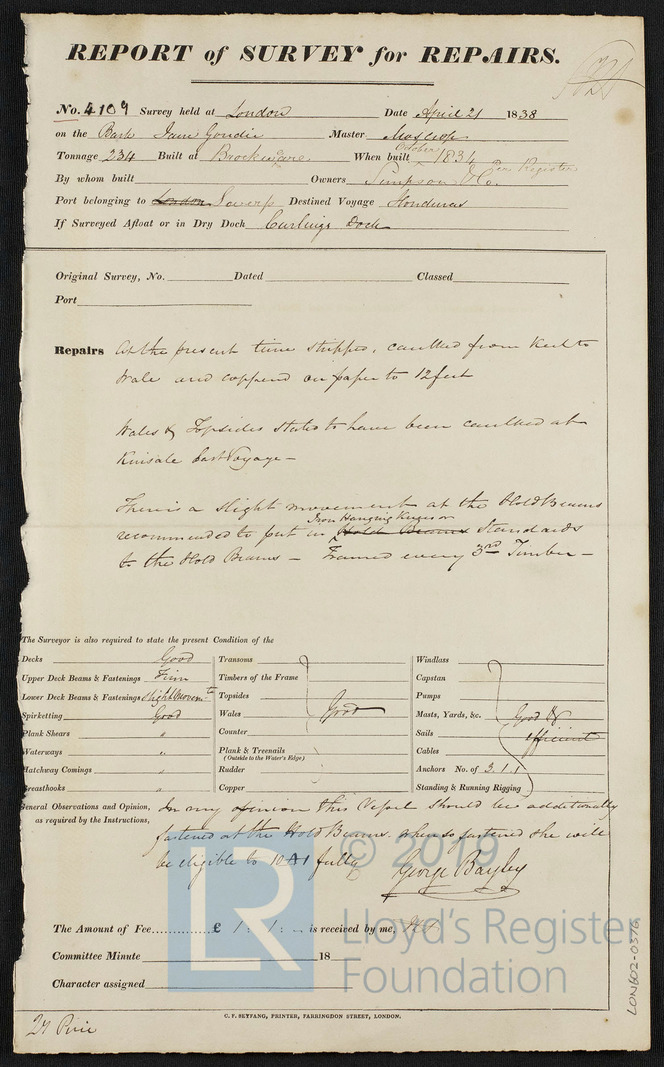 REPORT of SURVEY for REPAIRS.
No. 4109 Survey held at London Date April 21 1838
on the Bark Jane Goudie Master
Tonnage 234 Built at Brockweare When built October 1834 per Register
By whom built Owners Simpson & Co.
Port belonging to London Liverp Destined Voyage Honduras
If Surveyed Afloat or in Dry Dock Curlings Dock
Original Survey, No. Dated Classed
Port
Repairs At the present time stripped, caulked from Keel to
Wale and coppered on paper to 12 feet
Wales & Topsides stated to have been caulked at
Kinsale last Voyage –
There is a slight movement at the Hold Beams
Iron Hanging Knees or
recommended to put in Hold Beams standards
to the Hold Beams – Framed every 3rd Timber –
The Surveyor is also required to state the present Condition of the
Decks Good Transoms Windlass
Upper Deck Beams & Fastenings Firm Timbers of the Frame Capstan
Lower Deck Beams & Fastenings slight movemt Topsides Pumps
Spirketting Good Wales Good Masts, Yards, &c. Good &
Plank Shears " Counter Sails efficient
Waterways " Plank & Treenails (Outside to the Water's Edge) Cables
Hatchway Comings " Rudder Anchors No. of 3.1.1
Breasthooks " Copper Standing & Running Rigging
General Observations and Opinion, as required by the Instructions,
In my opinion this Vessel should be additionally
fastened at the Hold Beams. when so fastened she will
be eligible to 10 A1 fully
George Bayley
The Amount of Fee £ 1 : 1 : – is received by me,
Committee Minute 18
Character assigned
C. F. SEYFANG, PRINTER, FARRINGDON STREET, LONDON.
LON602-0376
© 2019
LR
Lloyd's Register
Foundation